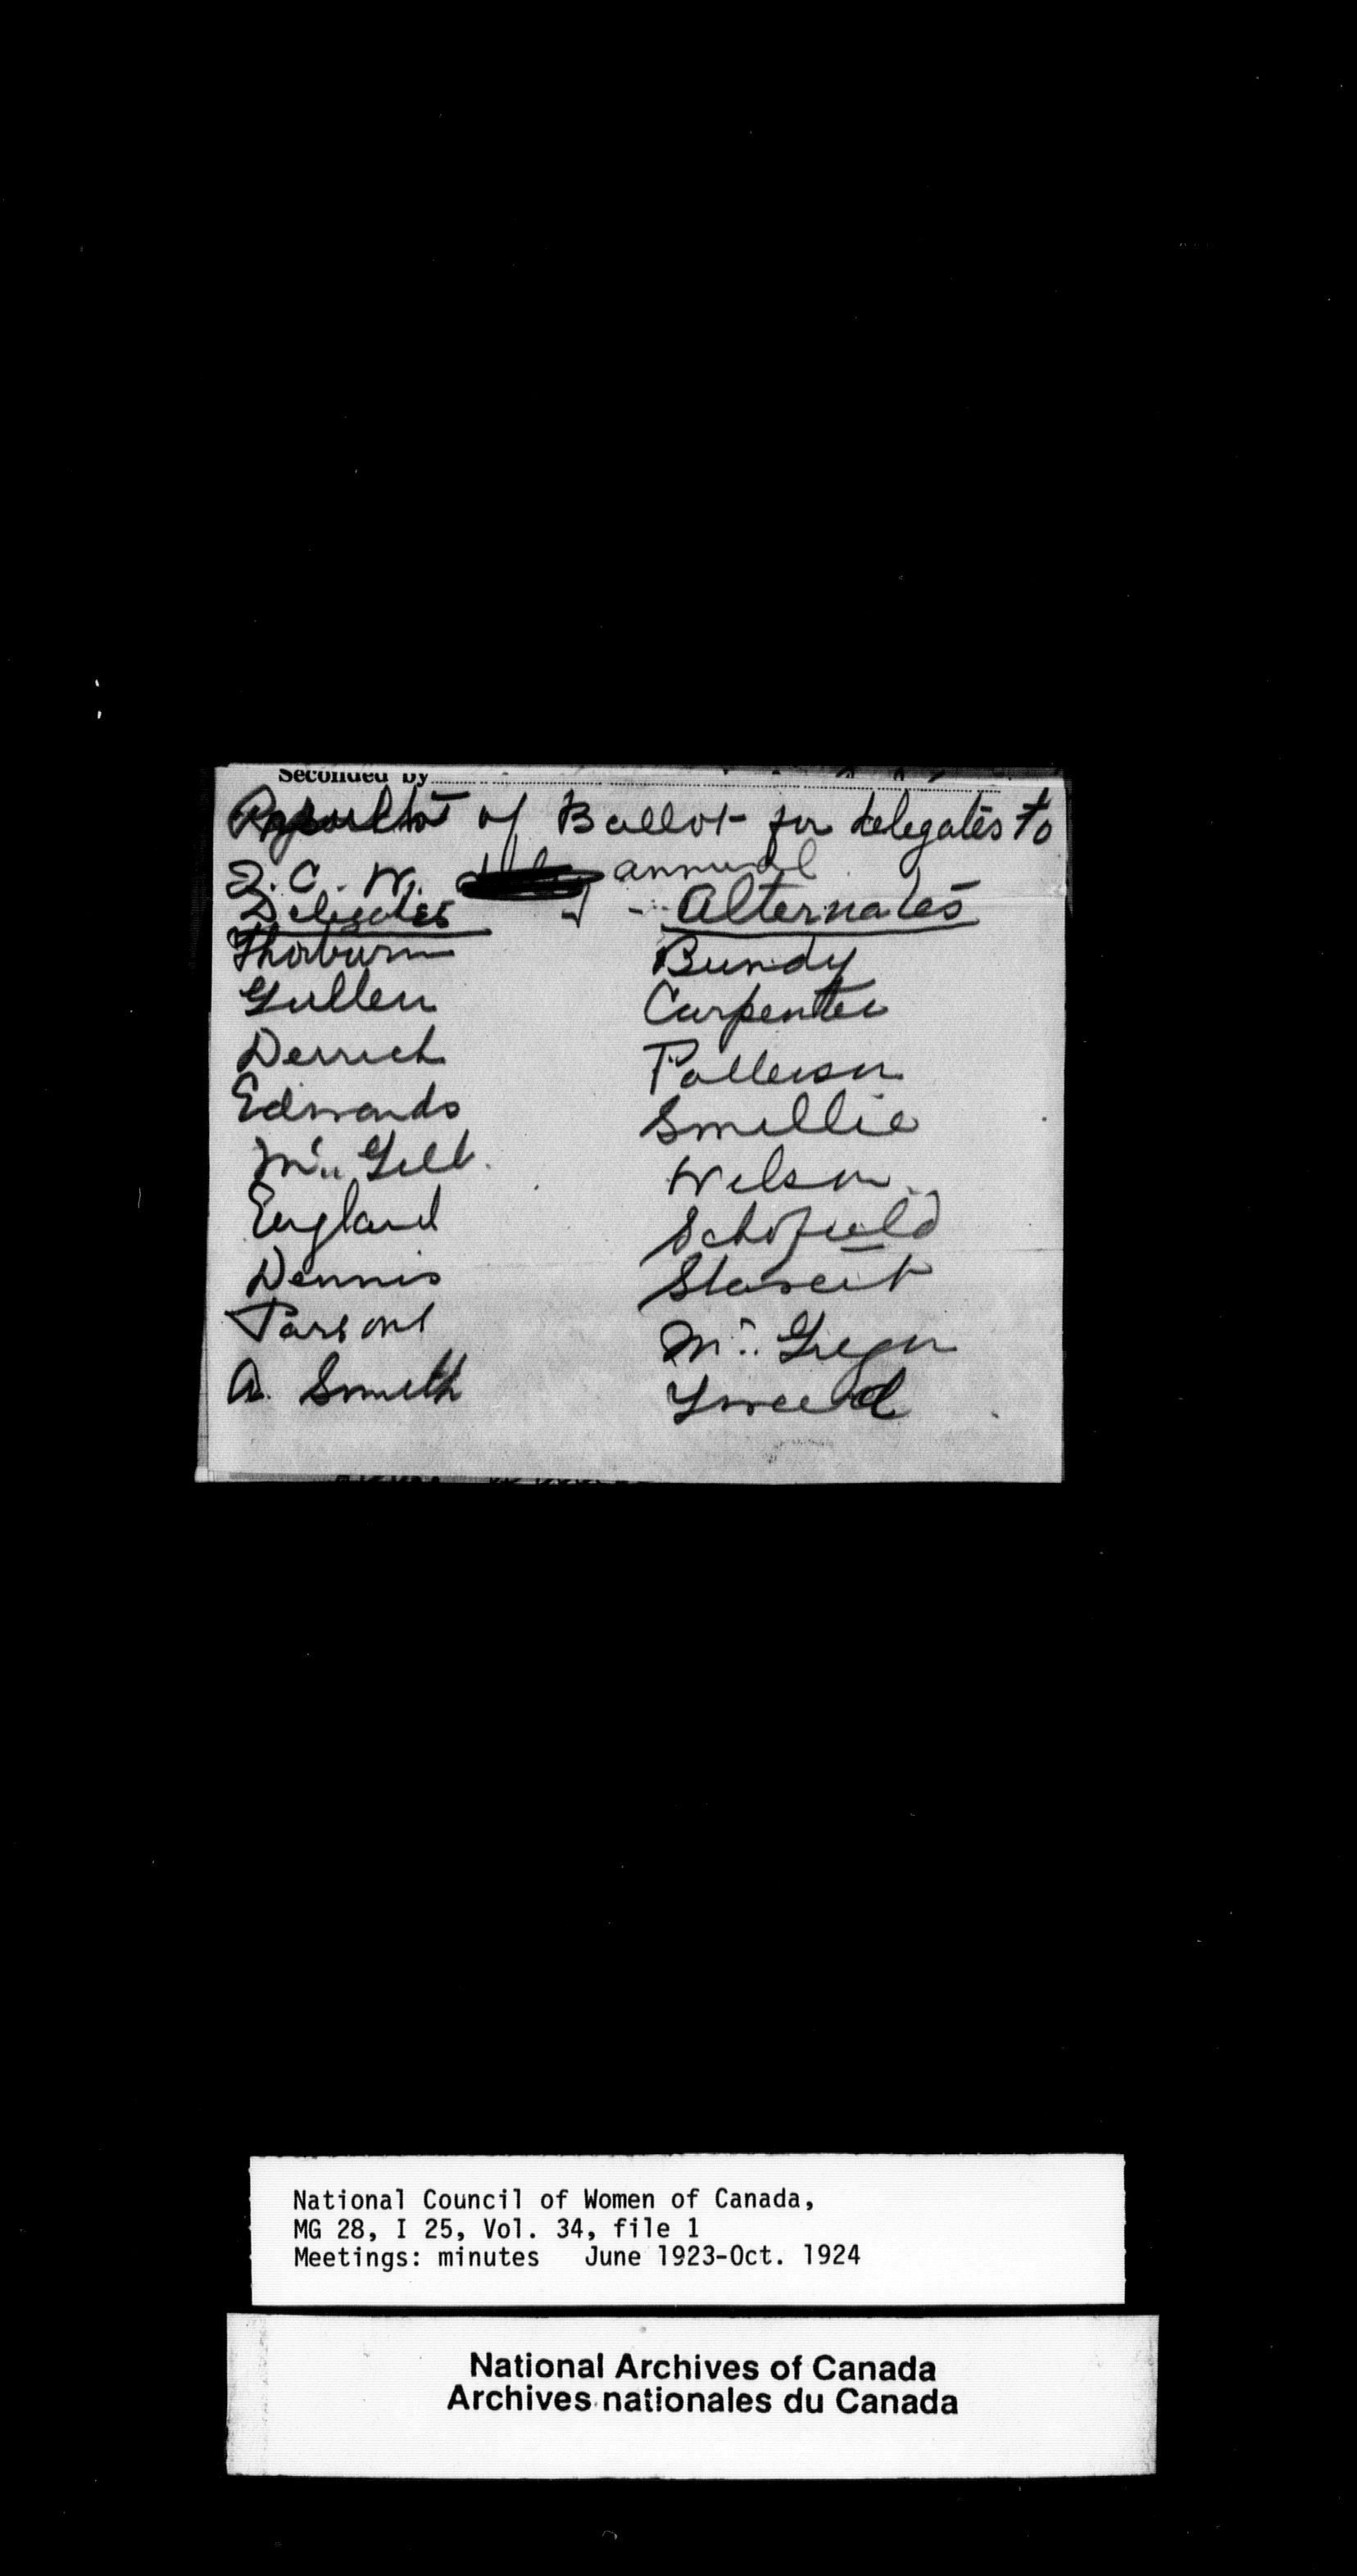 Seconded by
Results of Ballot for delegates to
I. C. W. annual
Delegates Alternates
Thorburn Bundy
Gullen Carpenter
Derrick Patterson
Edwards Smellie
Mc. Gill Wilson
England Schofield
Dennis Stewart
Parsons Mc. Gregor
A. Smith Tweed
National Council of Women of Canada,
MG 28, I 25, Vol. 34, file 1
Meetings: minutes June 1923-Oct. 1924
National Archives of Canada
Archives nationales du Canada